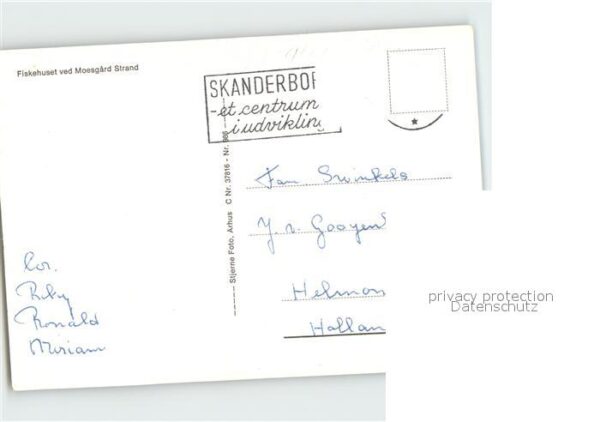 Fiskehuset ved Moesgård Strand
SKANDERBOR
- et centrum
i udvikling
Stjerne Foto, Århus C Nr. 37816 - Nr. 986
Fam Swinkels
J. v. Gooyen
Helmon
Hollan
Cor.
Riky
Ronald
Miriam
privacy protection
Datenschutz